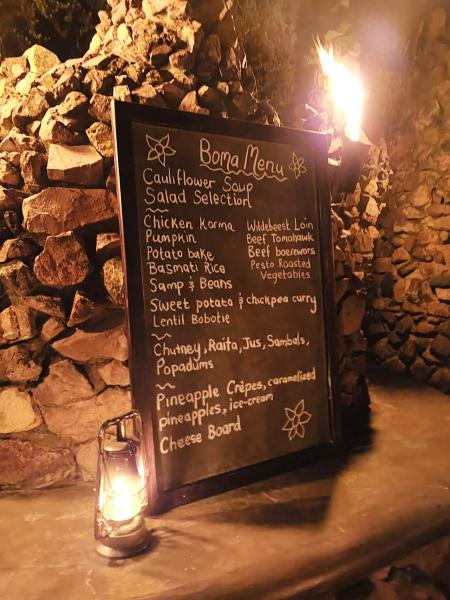 Boma Menu
Cauliflower Soup
Salad Selection
Chicken Korma
Pumpkin
Potato bake
Basmati Rice
Samp & Beans
Wildebeest Loin
Beef Tomahawk
Beef boerewors
Pesto Roasted
Vegetables
Sweet potato & chickpea curry
Lentil Bobotie
Chutney, Raita, Jus, Sambals,
Popadums
Pineapple Crêpes, caramelized
pineapples, ice-cream
Cheese Board